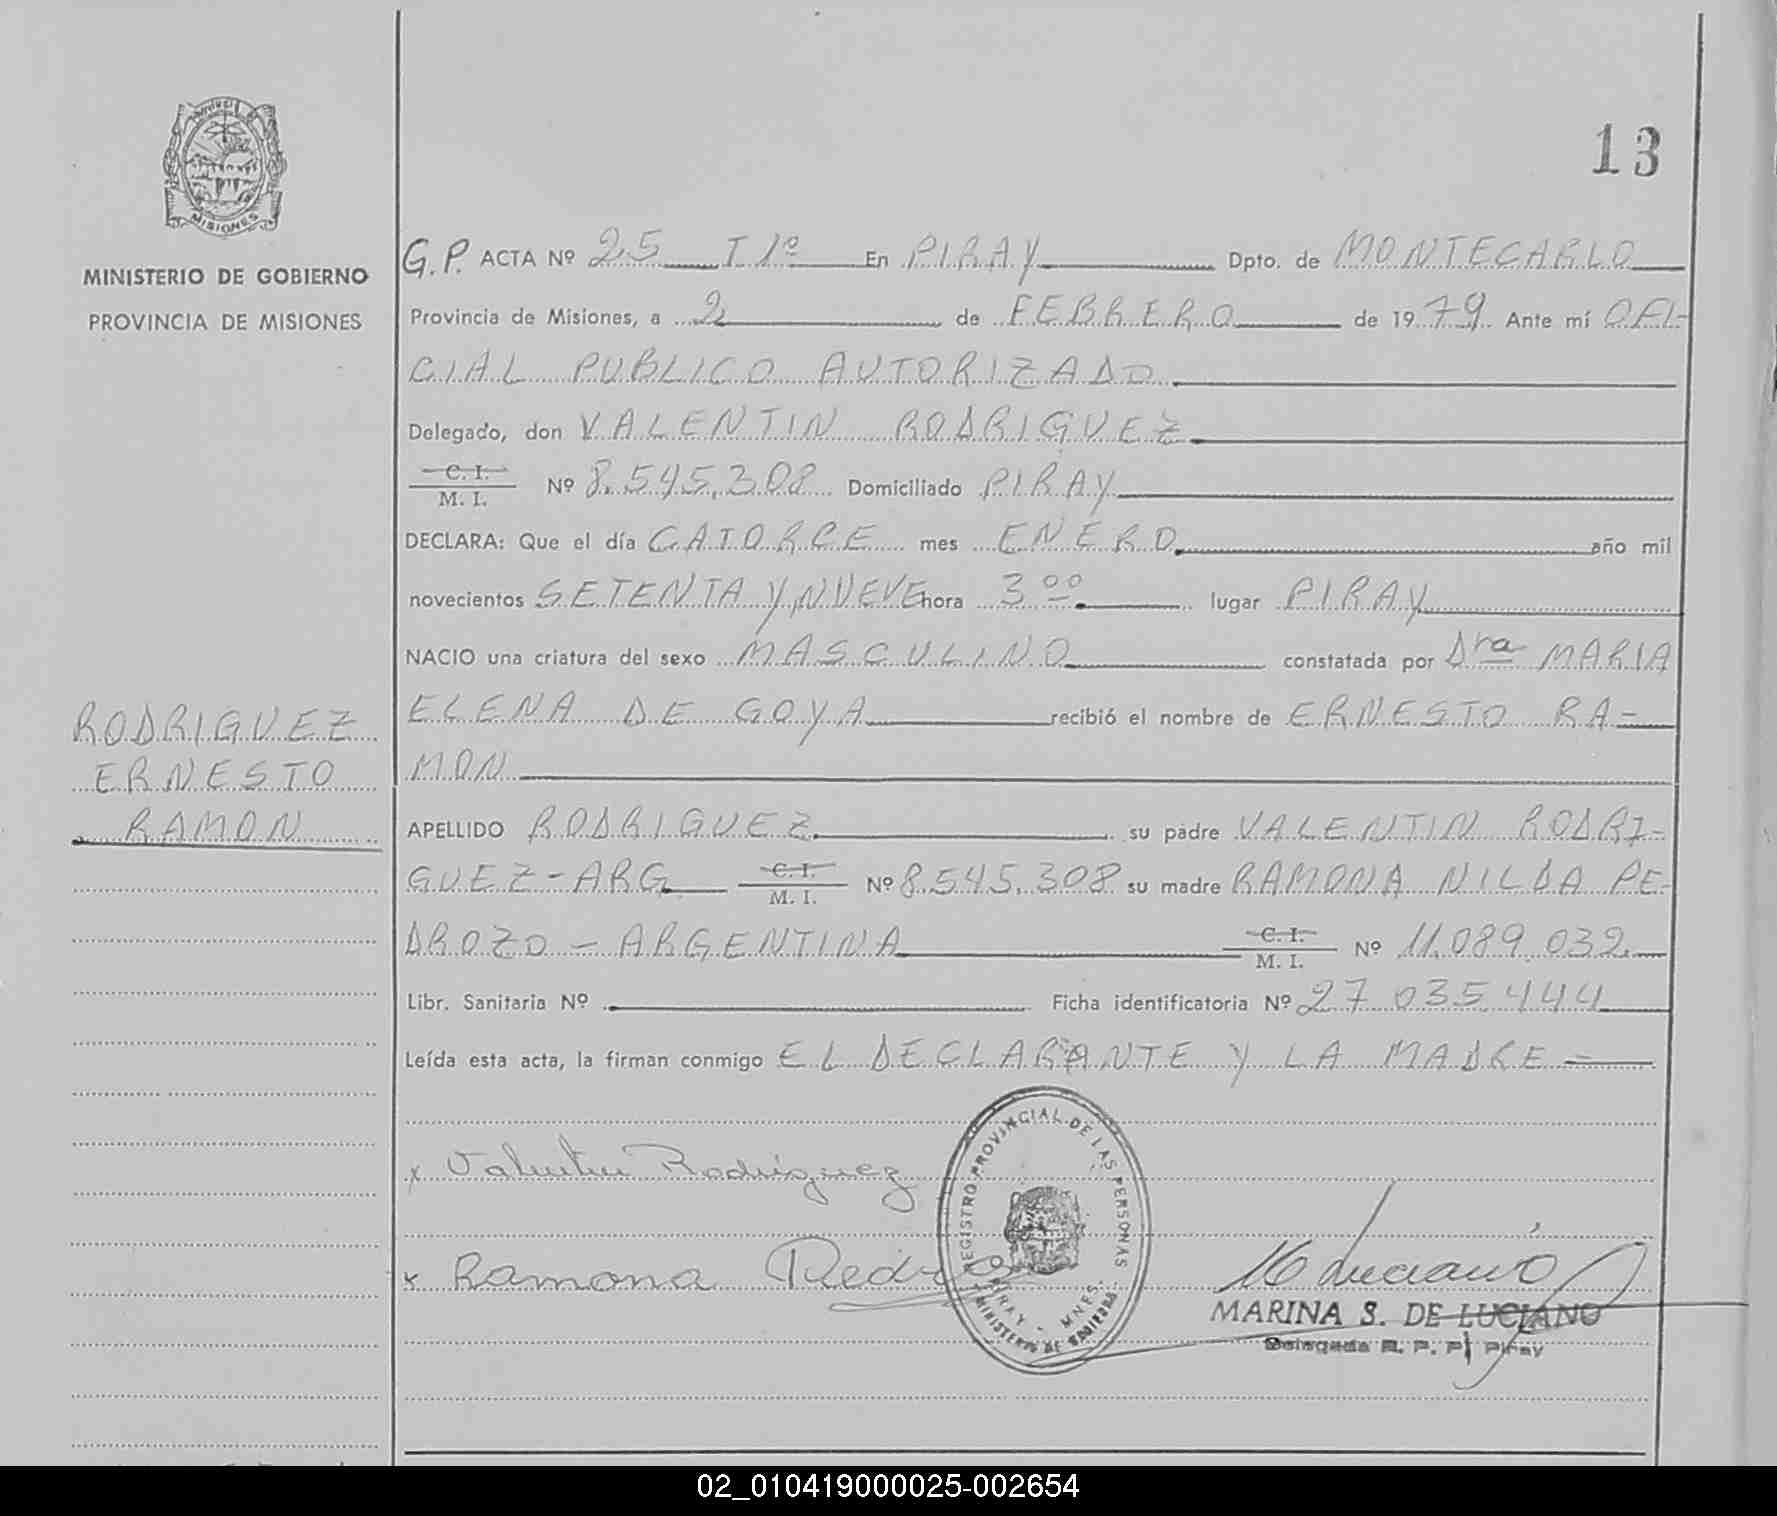 13
MISIONES
MINISTERIO DE GOBIERNO
PROVINCIA DE MISIONES
RODRIGUEZ
ERNESTO
RAMON
G.P. ACTA Nº 25 T 1º En PIRAY Dpto. de MONTECARLO
Provincia de Misiones, a 2 de FEBRERO de 1979. Ante mí OFI-
CIAL PUBLICO AUTORIZADO
Delegado, don VALENTIN RODRIGUEZ
C. I.
M. I. Nº 8.545.308 Domiciliado PIRAY
DECLARA: Que el día CATORCE mes ENERO año mil
novecientos SETENTA Y NUEVE hora 3 00 lugar PIRAY
NACIO una criatura del sexo MASCULINO constatada por Dra MARIA
ELENA DE GOYA recibió el nombre de ERNESTO RA-
MON
APELLIDO RODRIGUEZ su padre VALENTIN RODRI-
GUEZ-ARG. C. I. M. I. Nº 8.545.308 su madre RAMONA NILDA PE-
DROZO - ARGENTINA C. I. M. I. Nº 11.089.032
Libr. Sanitaria Nº Ficha identificatoria Nº 27 035 444
Leída esta acta, la firman conmigo EL DECLARANTE Y LA MADRE =
x Valentin Rodriguez
x Ramona Pedrozo
REGISTRO PROVINCIAL DE LAS PERSONAS
PIRAY - MNES.
MINISTERIO DE
M Luciano
MARINA S. DE LUCIANO
Delegada R. P. P. Piray
02_010419000025-002654